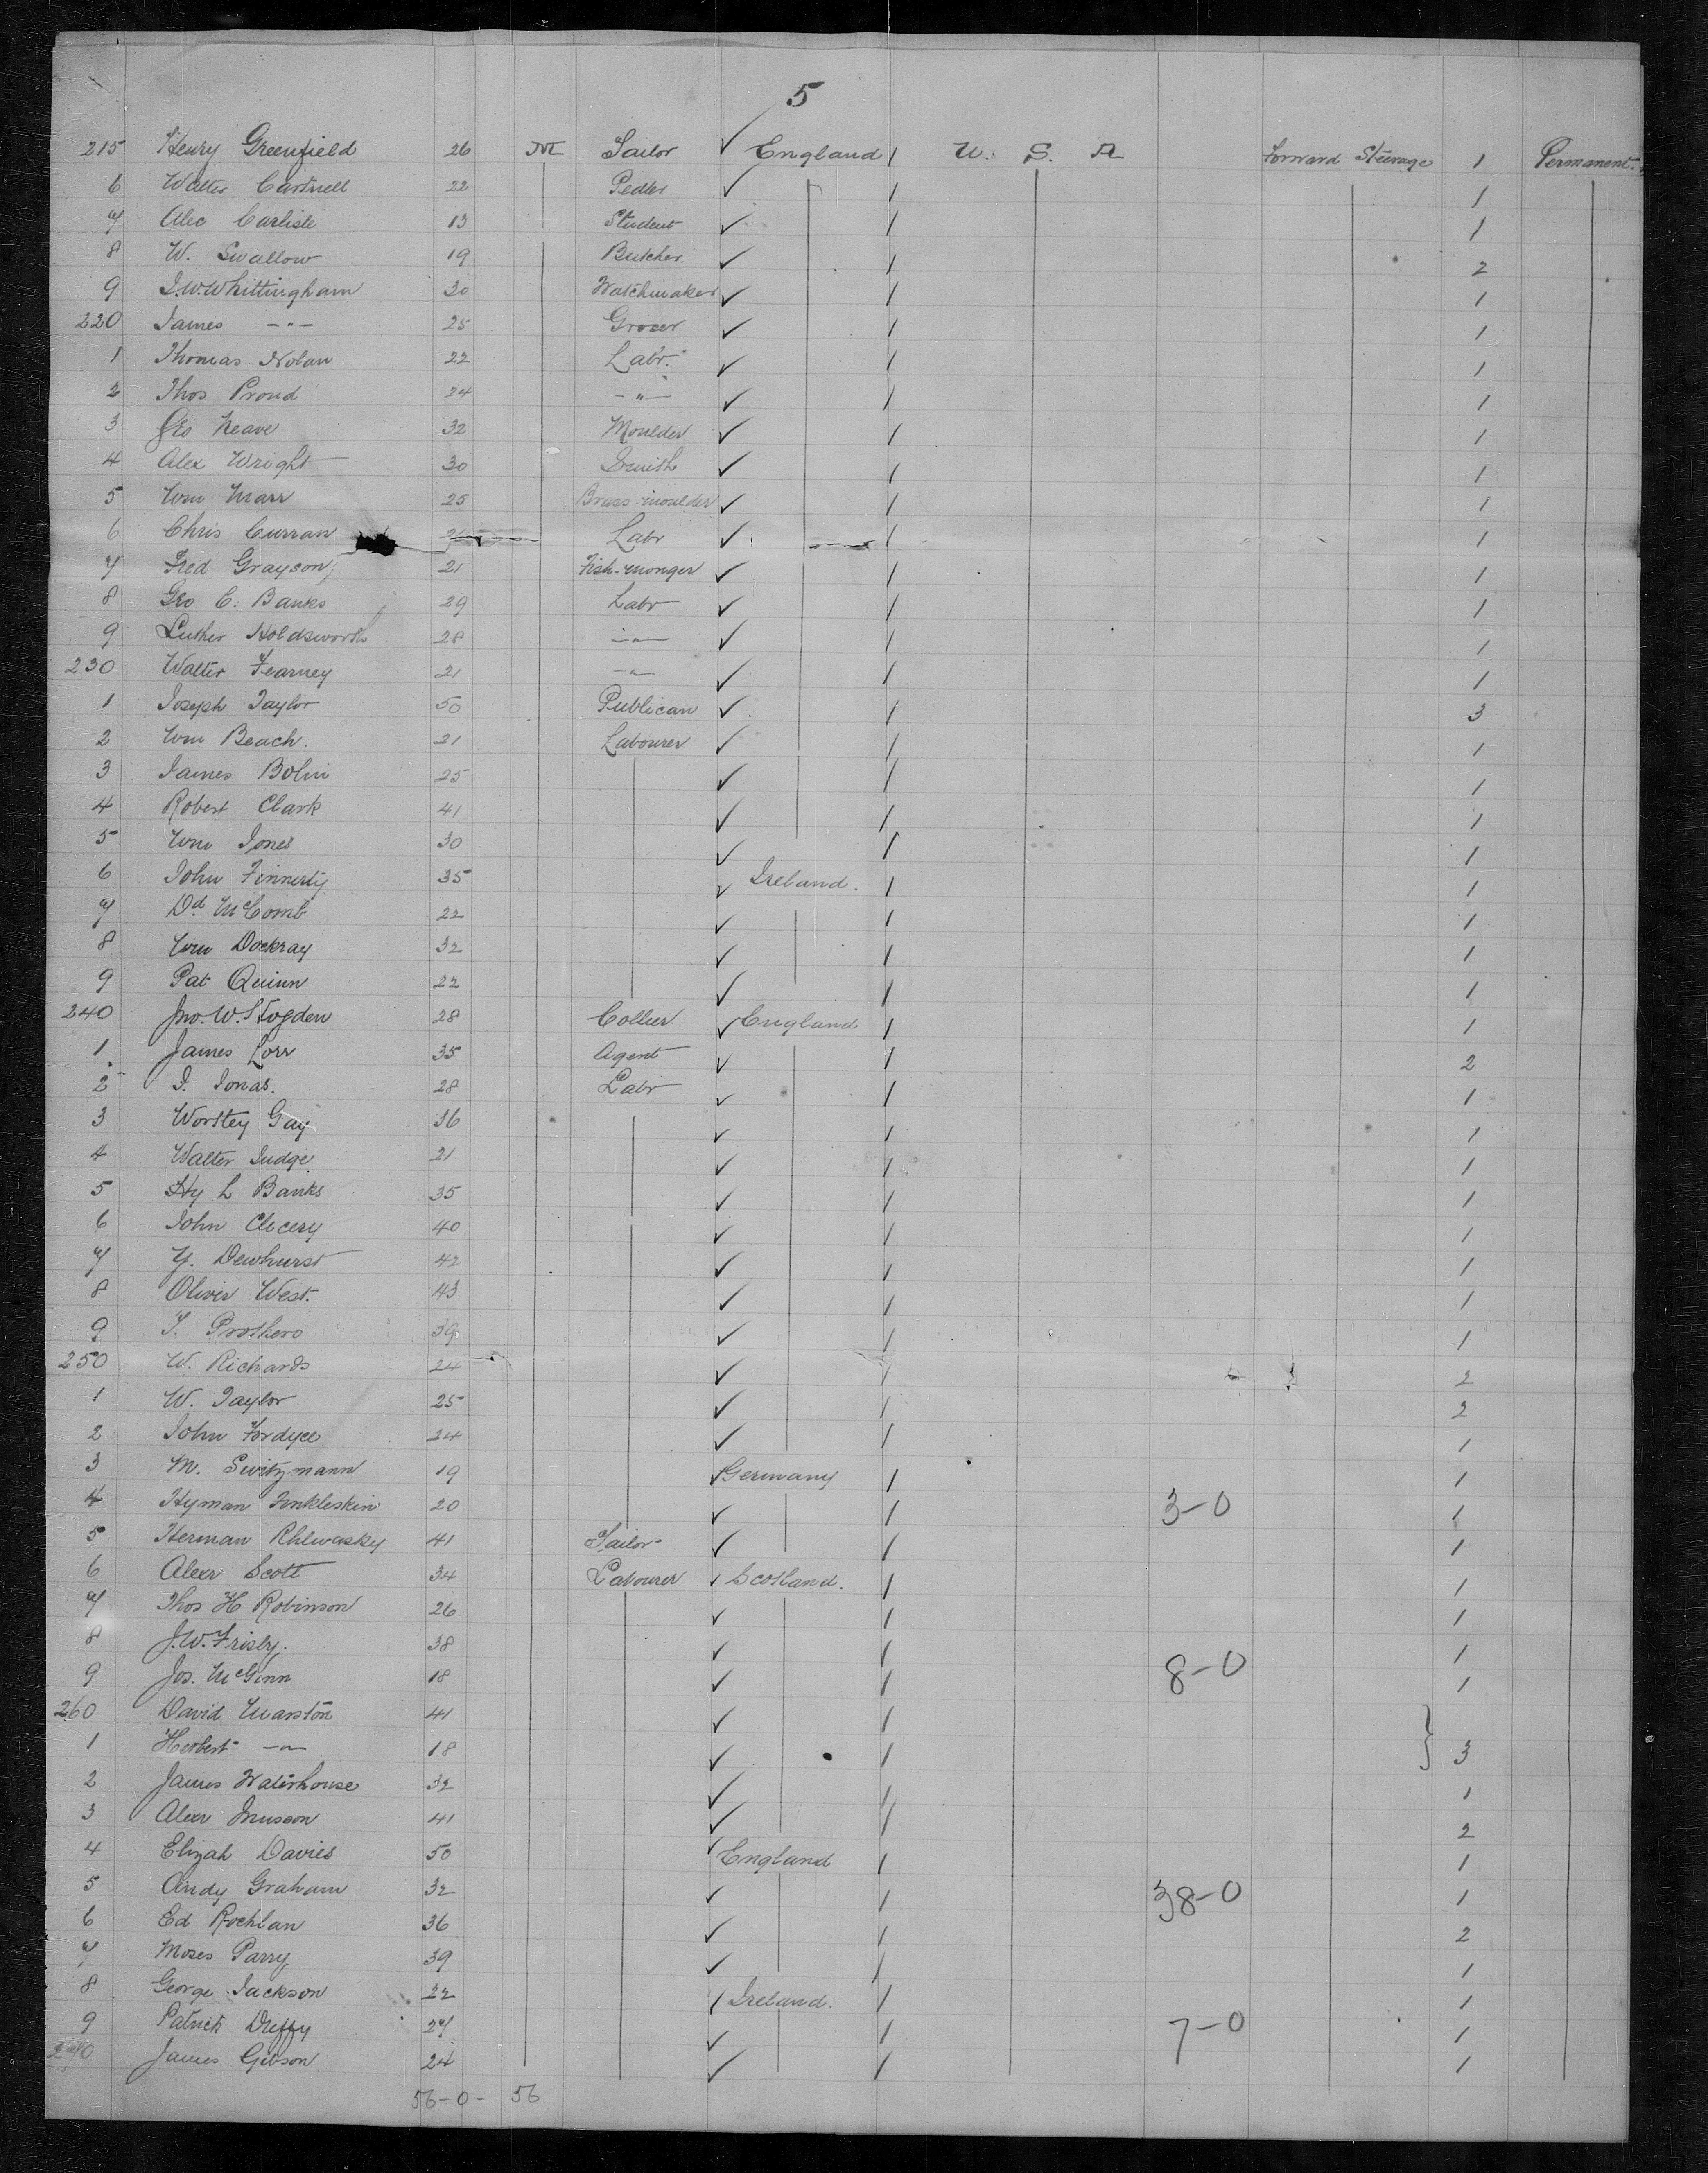 5
215 Henry Greenfield 26 M Sailor ✓ England / U. S. A Forward Steerage 1 Permanent.
6 Walter Cartnell 22 Pedler ✓ / 1
7 Alec Carlisle 13 Student ✓ / 1
8 W. Swallow 19 Butcher ✓ / 2
9 J.W. Whittingham 30 Watchmaker ✓ / 1
220 James -"- 25 Grocer ✓ / 1
1 Thomas Nolan 22 Labr. ✓ / 1
2 Thos Proud 24 -"- ✓ / 1
3 Geo Neave 32 Moulder ✓ / 1
4 Alex Wright 30 Smith ✓ / 1
5 Wm Marr 25 Brass-moulder ✓ / 1
6 Chris Curran Labr ✓ / 1
7 Fred Grayson 21 Fish-monger ✓ / 1
8 Geo C. Banks 29 Labr ✓ / 1
9 Luther Holdsworth 28 -"- ✓ / 1
230 Walter Fearney 21 -"- ✓ / 1
1 Joseph Taylor 50 Publican ✓ / 3
2 Wm Beach. 21 Labourer ✓ / 1
3 James Bolin 25 ✓ / 1
4 Robert Clark 41 ✓ / 1
5 Wm Jones 30 ✓ / 1
6 John Finnerty 35 ✓ Ireland. / 1
7 Dd McComb 22 ✓ / 1
8 Wm Dockray 32 ✓ / 1
9 Pat Quinn 22 ✓ / 1
240 Jno. W. Stogden 28 Collier ✓ England / 1
1 James Lorr 35 Agent ✓ / 2
2 J. Jonas. 28 Labr ✓ / 1
3 Wortley Gay 36 ✓ / 1
4 Walter Judge 21 ✓ / 1
5 Hy L Banks 35 ✓ / 1
6 John Clecery 40 ✓ / 1
7 Y. Dewhurst 42 ✓ / 1
8 Oliver West. 43 ✓ / 1
9 T. Prothero 39 ✓ / 1
250 W. Richards 24 ✓ / 2
1 W. Taylor 25 ✓ / 2
2 John Fordyce 24 ✓ / 1
3 M. Switzmann 19 ✓ Germany / 1
4 Hyman Finkleskin 20 ✓ / 3-0 1
5 Herman 41 Tailor ✓ / 1
6 Alexr Scott 34 Labourer ✓ Scotland. / 1
7 Thos H Robinson 26 ✓ / 1
8 J.W. Frisby. 38 ✓ / 1
9 Jos. McGinn 18 ✓ / 8-0 1
260 David Marston 41 ✓ /
1 Herbert -"- 18 ✓ / } 3
2 James Waterhouse 32 ✓ / 1
3 Alexr Musson 41 ✓ / 2
4 Elizah Davies 50 ✓ England / 1
5 Andy Graham 32 ✓ / 38-0 1
6 Ed Rochlan 36 ✓ / 2
7 Moses Parry 39 ✓ / 1
8 George Jackson 22 / Ireland. / 1
9 Patrick Duffy 27 ✓ / 7-0 1
270 James Gibson 24 ✓ / 1
56-0- 56